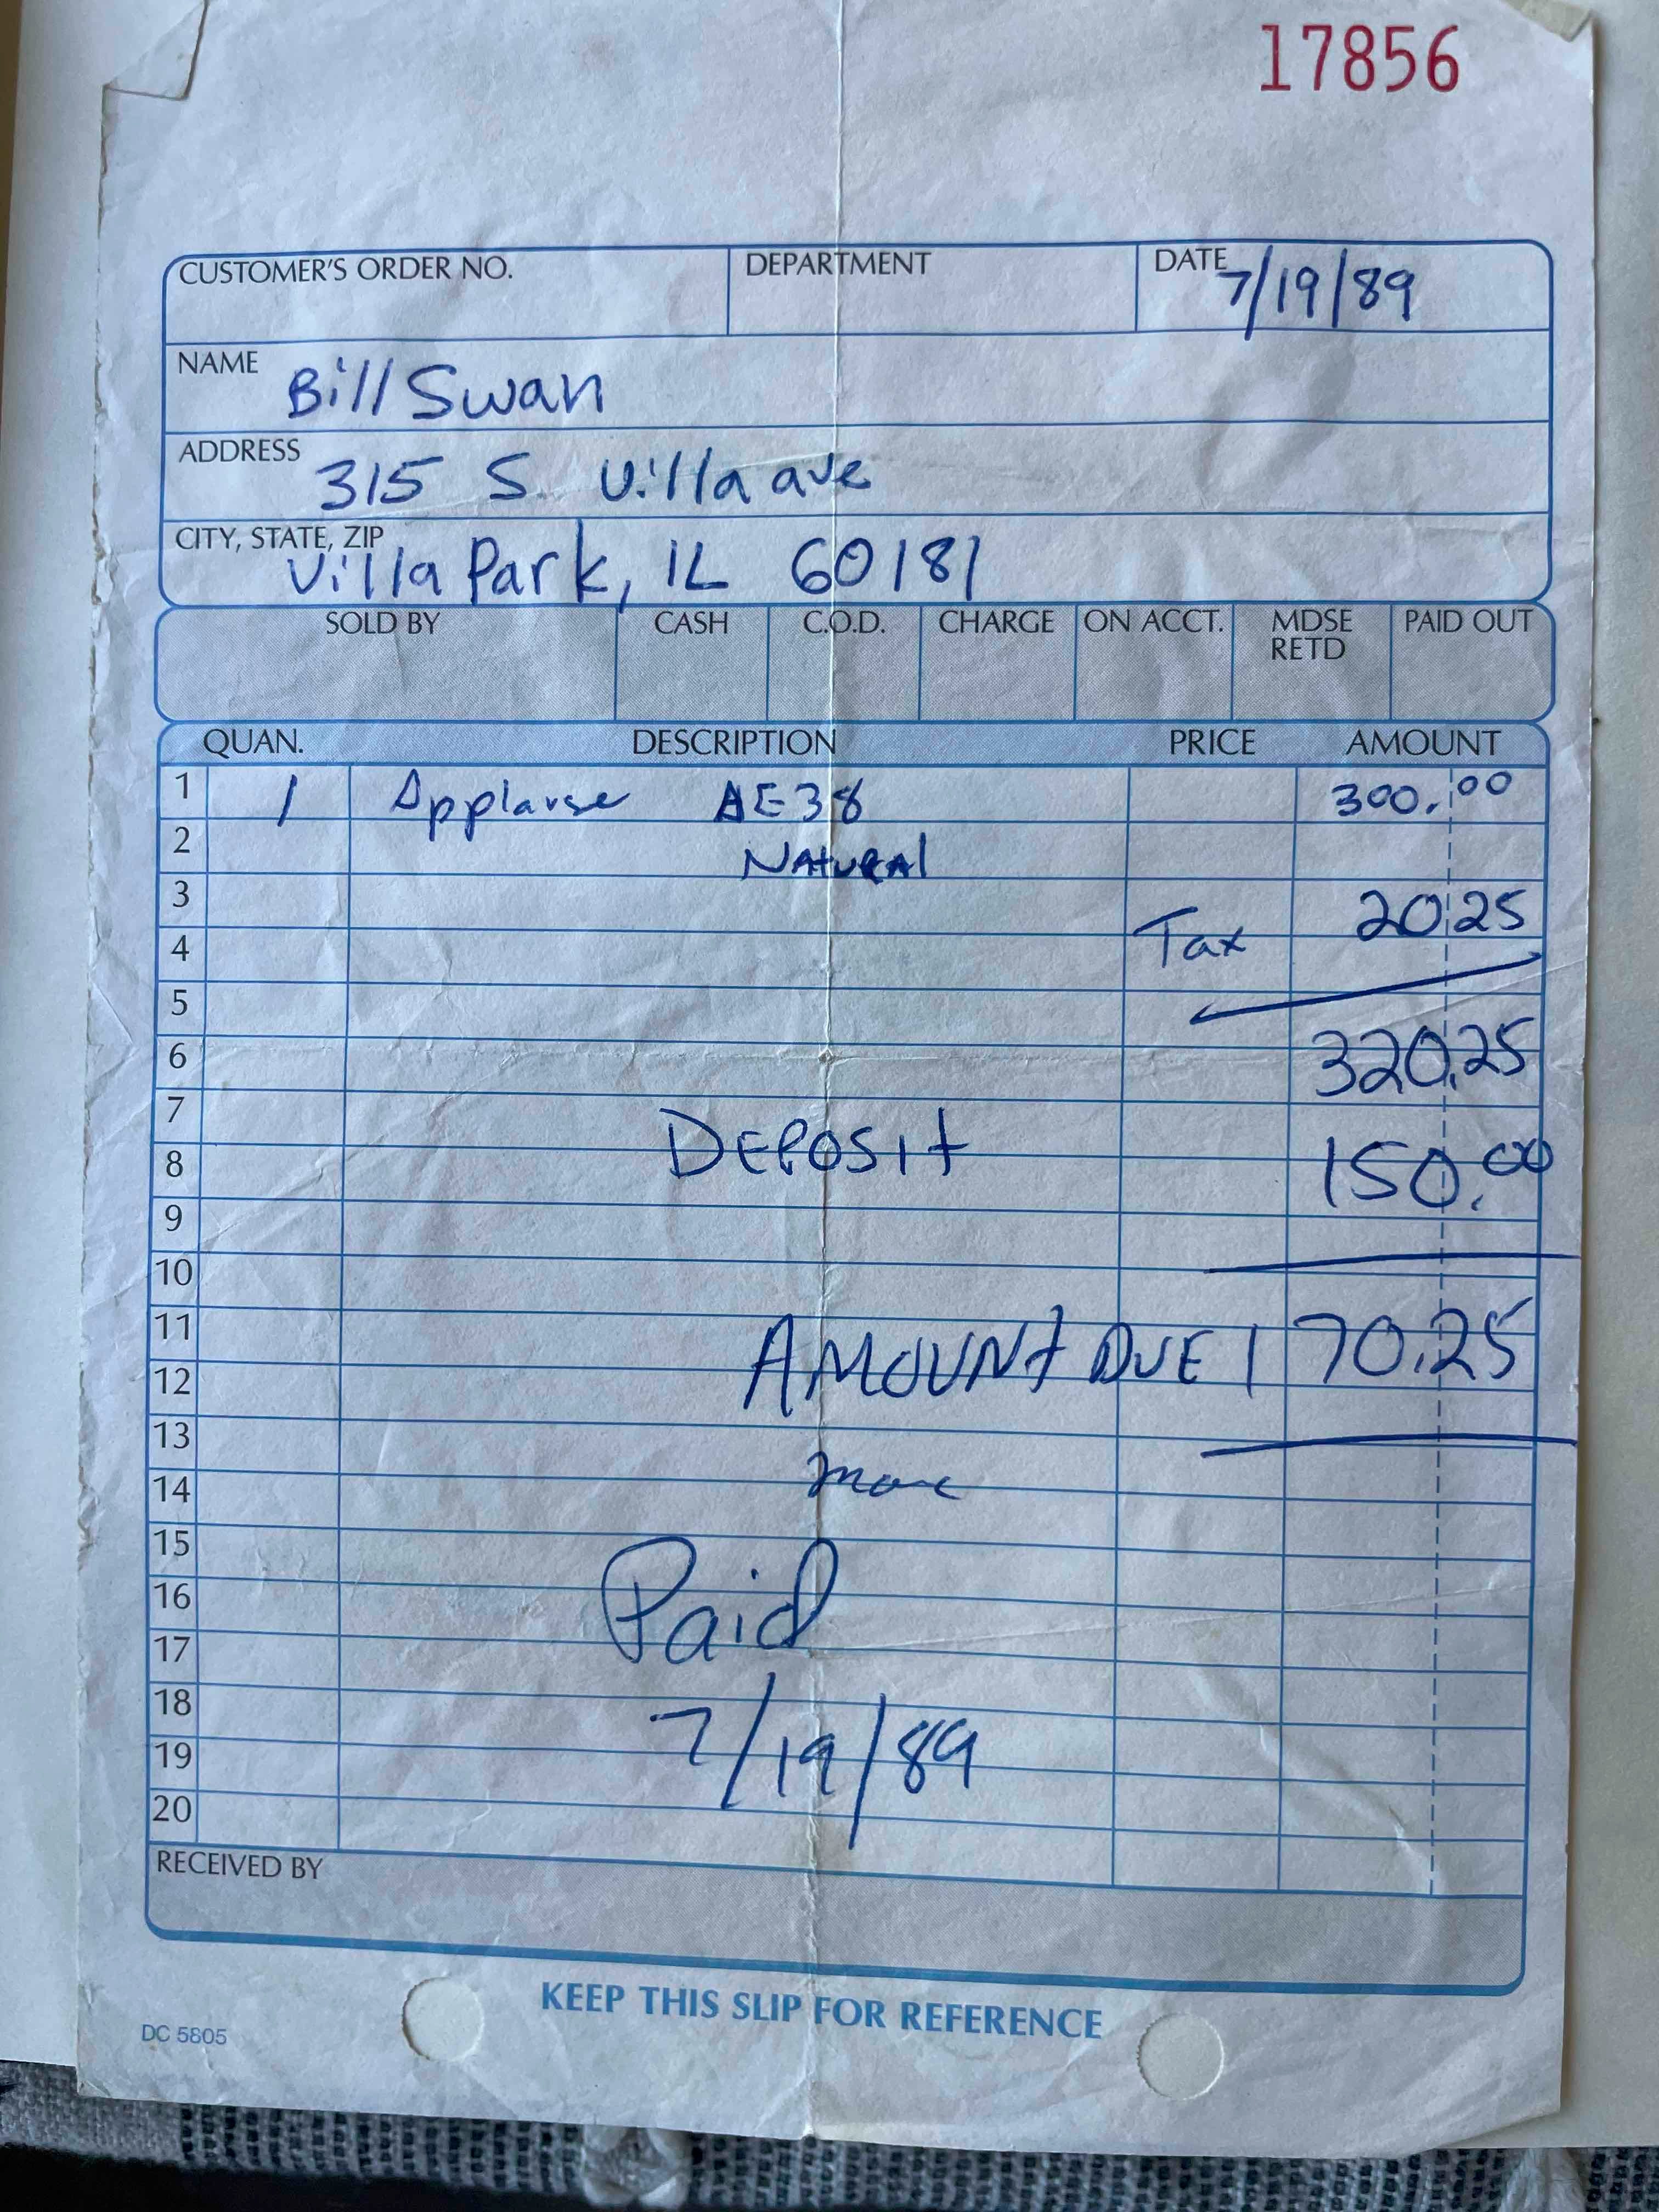 17856
CUSTOMER'S ORDER NO. DEPARTMENT DATE 7/19/89
NAME Bill Swan
ADDRESS 315 S. Villa ave
CITY, STATE, ZIP Villa Park, IL 60181
SOLD BY CASH C.O.D. CHARGE ON ACCT. MDSE RETD PAID OUT
QUAN. DESCRIPTION PRICE AMOUNT
1 1 Applause AE38 300.00
2 Natural
3 Tax 20.25
4
5
6 320.25
7
8 Deposit 150.00
9
10
11 AMOUNT DUE 170.25
12
13
14
15
16 Paid
17
18
19 7/19/89
20
RECEIVED BY
KEEP THIS SLIP FOR REFERENCE
DC 5805